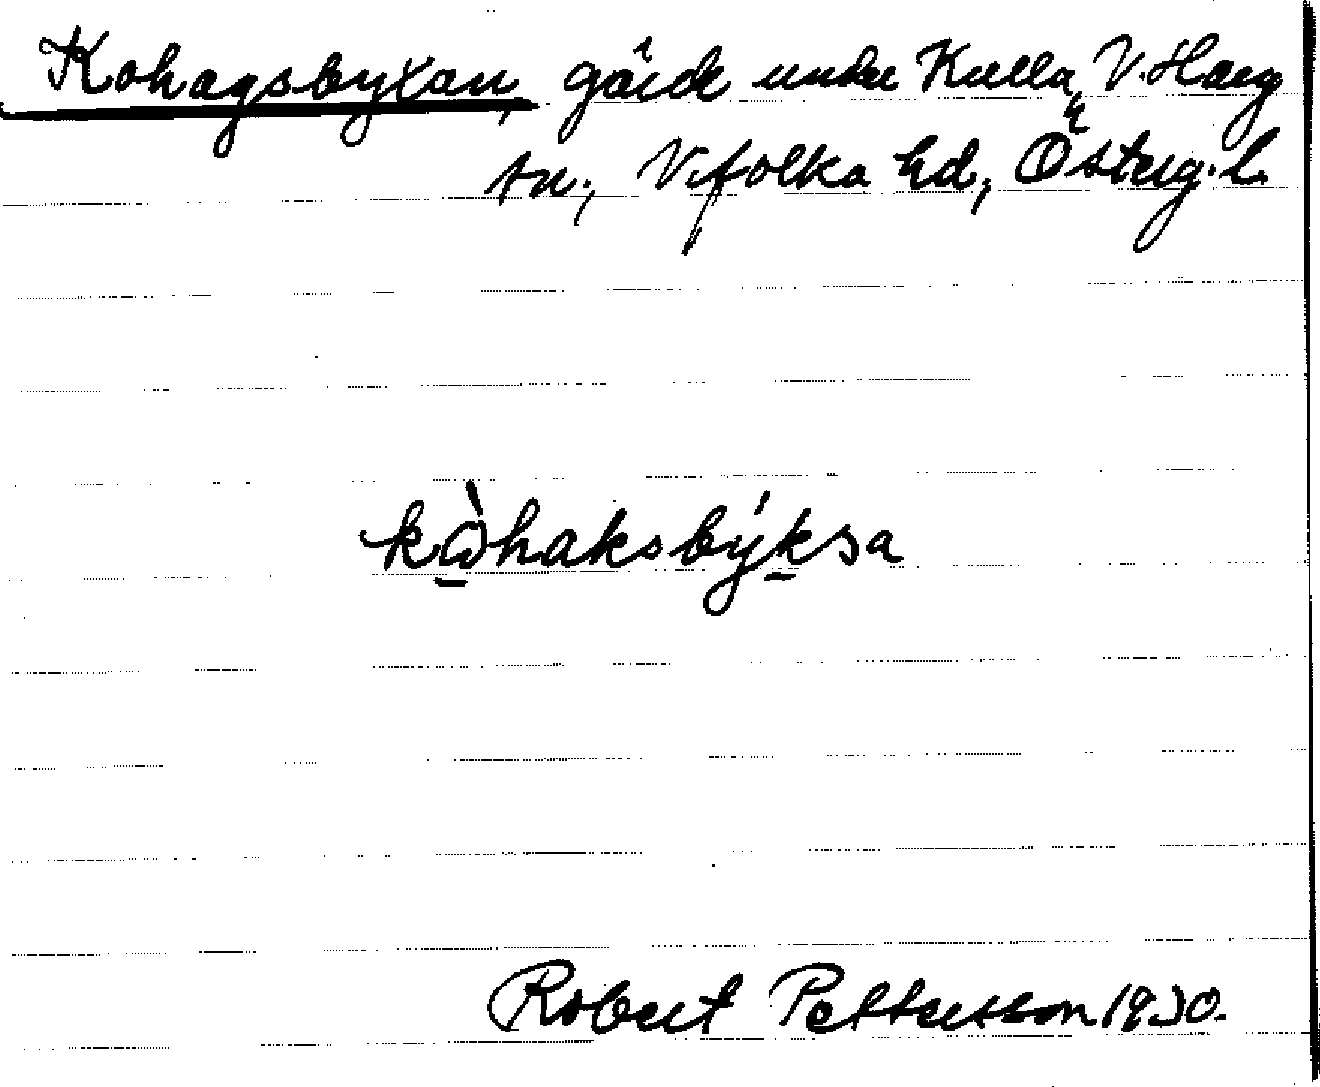 Kohagsbyxan, gärde under Kulla, V. Harg
sn., Vifolka hd, Österg. l.
kὼhaksbýksa
Robert Pettersson 1930.